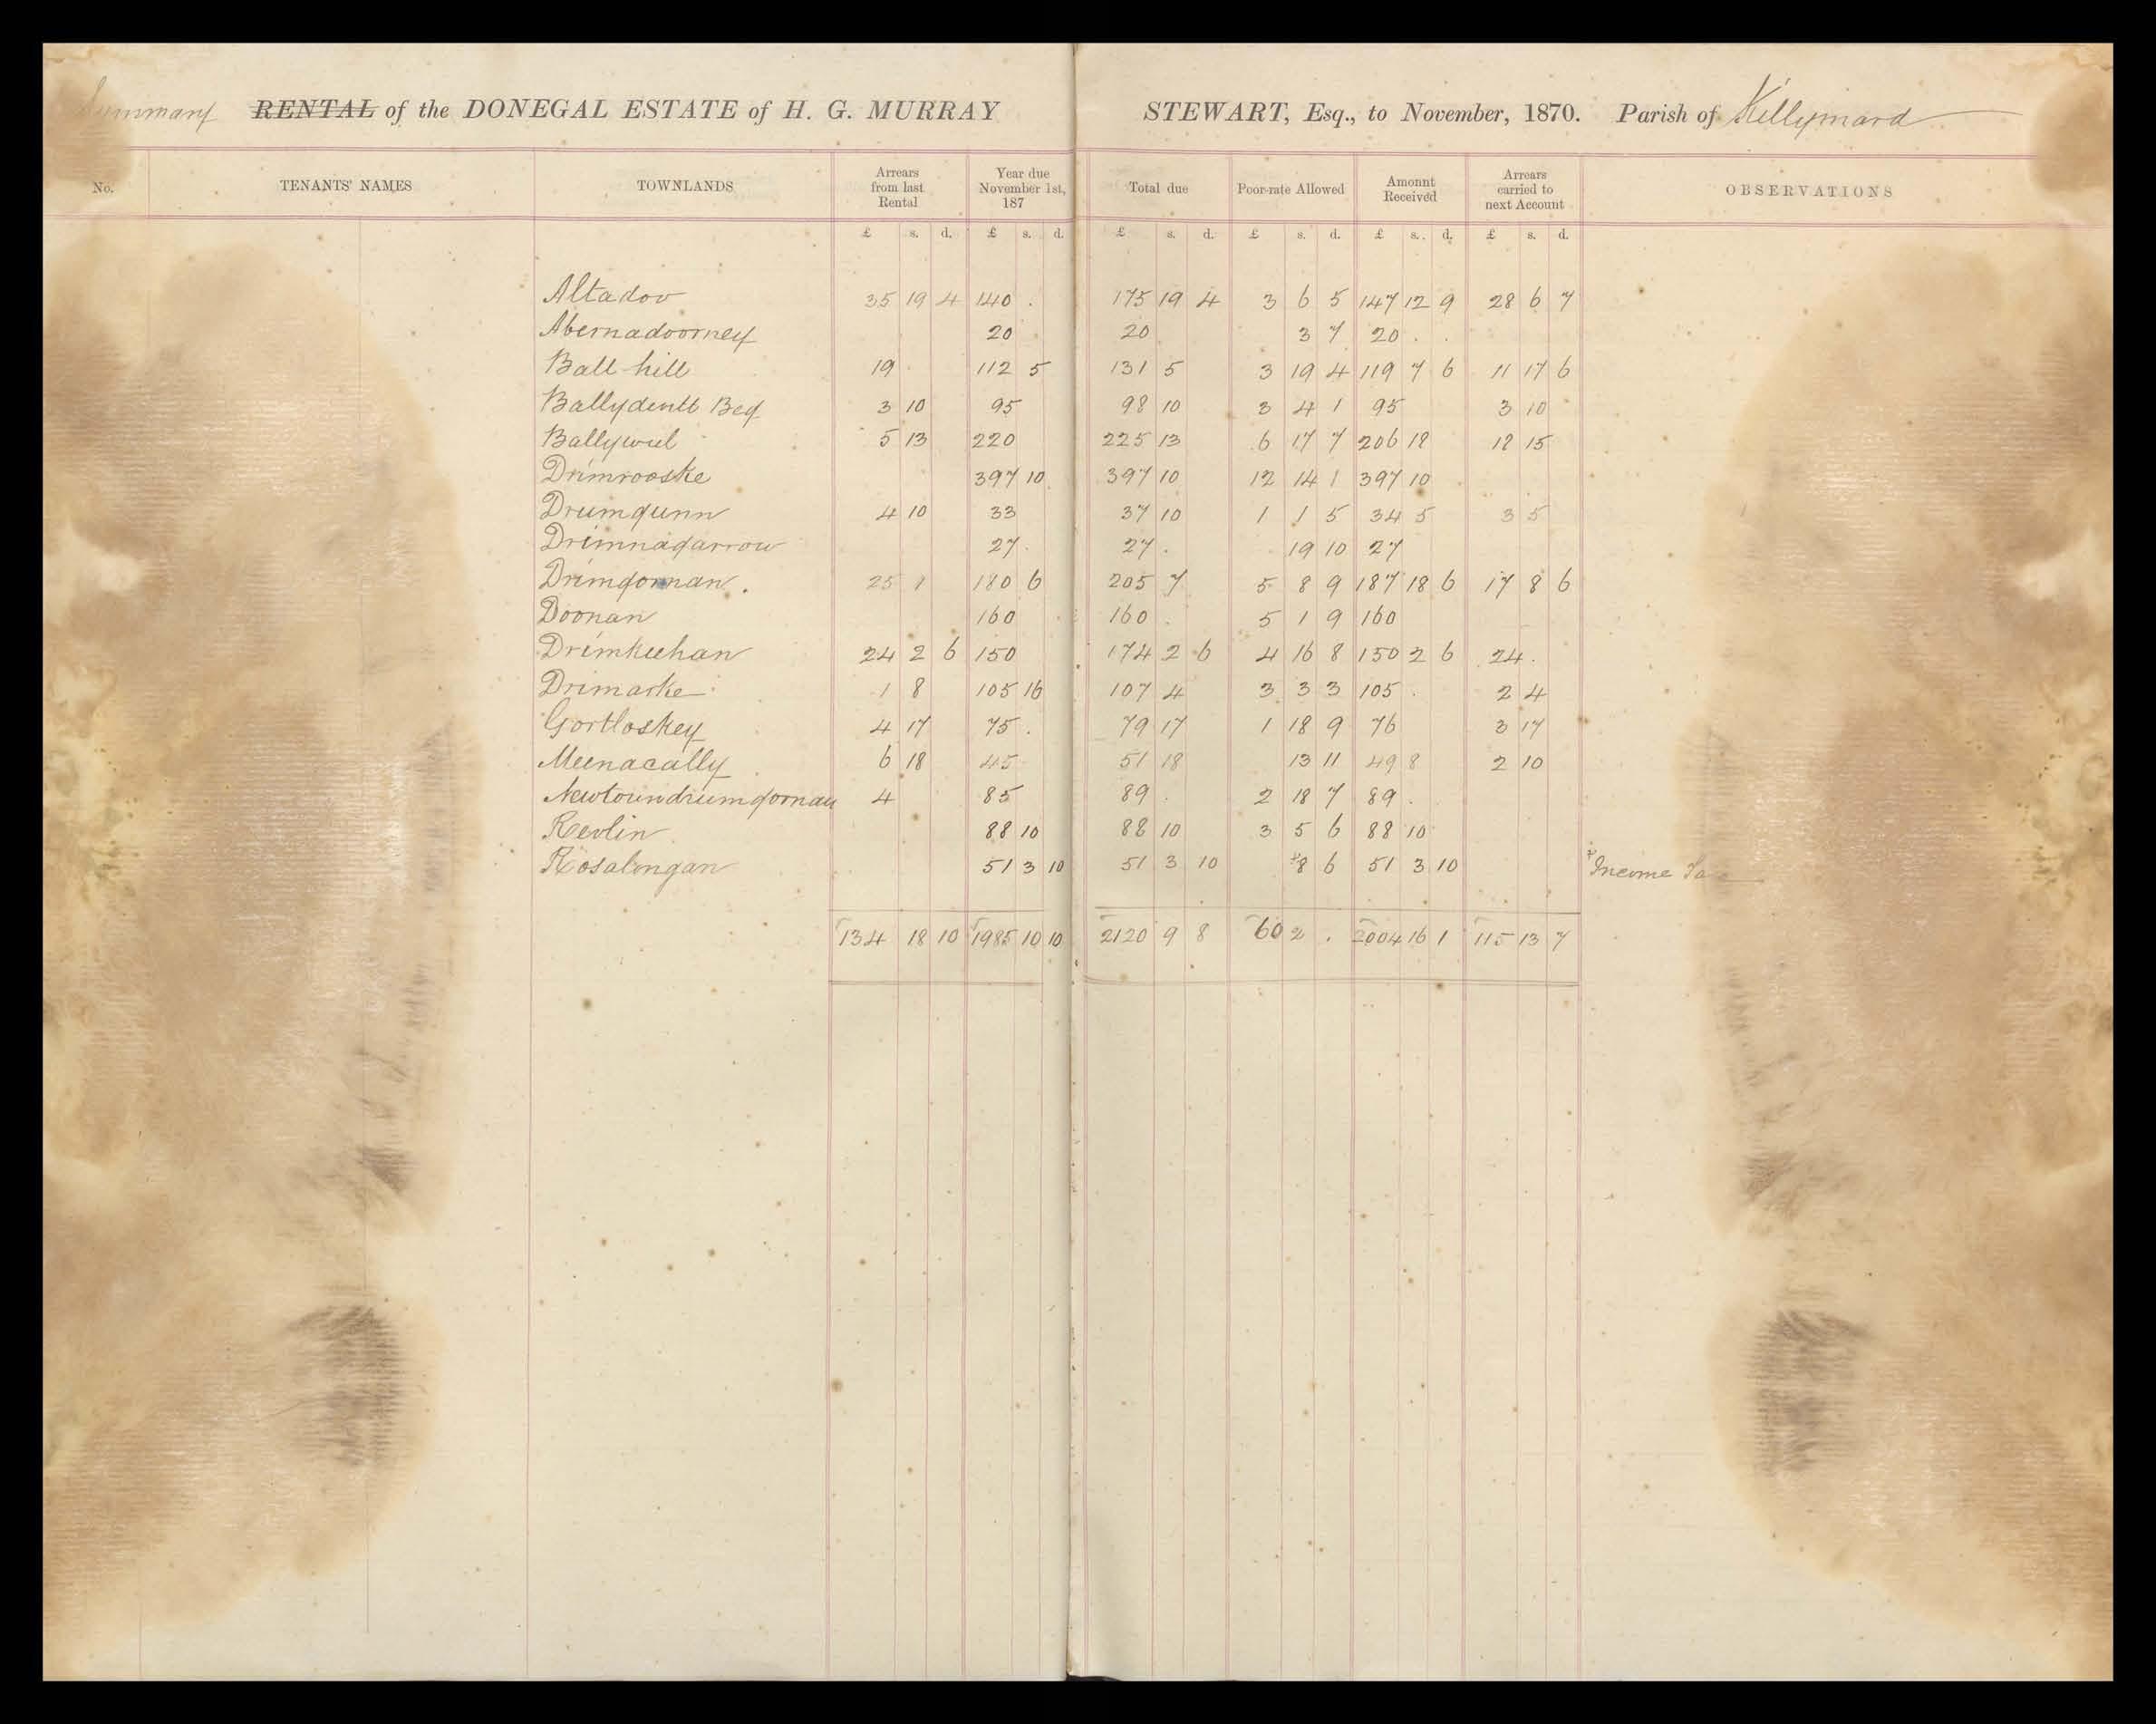 Summary RENTAL of the DONEGAL ESTATE of H. G. MURRAY STEWART, Esq., to November, 1870. Parish of Killymard
No. TENANTS' NAMES TOWNLANDS Arrears from last Rental Year due November 1st, 187 Total due Poor-rate Allowed Amount Received Arrears carried to next Account OBSERVATIONS
£ s. d. £ s. d. £ s. d. £ s. d. £ s. d. £ s. d.
Altadoo 35 19 4 140 . 175 19 4 3 6 5 147 12 9 28 6 7
Abernadoorney 20 20 3 7 20 . .
Ball hill 19 112 5 131 5 3 19 4 119 7 6 11 17 6
Ballydevitt Beg 3 10 95 98 10 3 4 1 95 3 10
Ballyweel 5 13 220 225 13 6 17 7 206 18 18 15
Drimrooske 397 10 397 10 12 14 1 397 10
Drumgunn 4 10 33 37 10 1 1 5 34 5 3 5
Drimnagarrow 27 . 27 . 19 10 27
Drimgornan . 25 1 180 6 205 7 5 8 9 187 18 6 17 8 6
Doonan 160 160 . 5 1 9 160
Drimkeehan 24 2 6 150 174 2 6 4 16 8 150 2 6 24 .
Drimarke 1 8 105 16 107 4 3 3 3 105 . 2 4
Gortloskey 4 17 75 . 79 17 1 18 9 76 3 17
Meenacally 6 18 45 51 18 13 11 49 8 2 10
Newtowndrumgornan 4 85 89 . 2 18 7 89 .
Revlin 88 10 88 10 3 5 6 88 10
Rosalongan 51 3 10 51 3 10 + 8 6 51 3 10 + Income Tax
134 18 10 1985 10 10 2120 9 8 60 2 . 2004 16 1 115 13 7